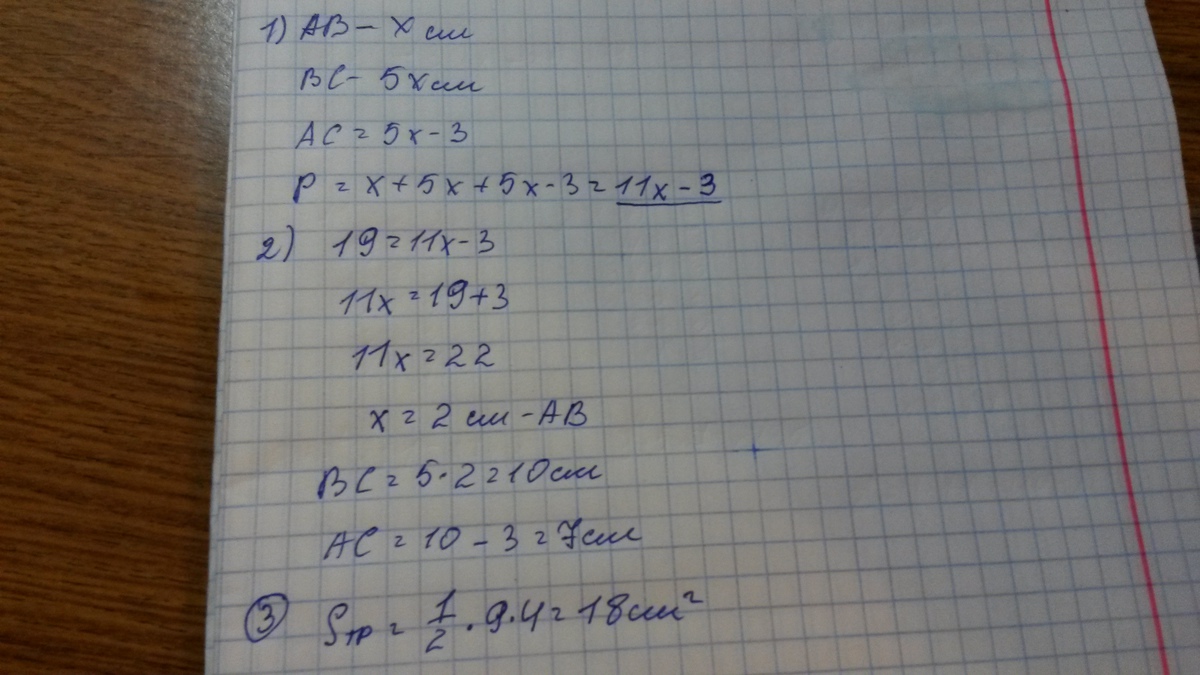 1) AB – x см
BC – 5x см
AC = 5x - 3
P = x + 5x + 5x - 3 = 11x - 3
2) 19 = 11x - 3
11x = 19 + 3
11x = 22
x = 2 см - AB
BC = 5 · 2 = 10 см
AC = 10 - 3 = 7 см
③ Sтр = 1/2 · 9 · 4 = 18 см²